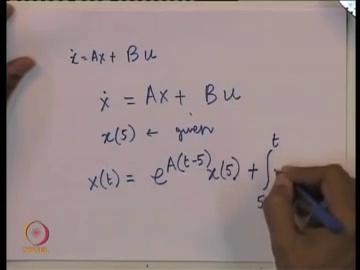 ẋ = Ax + Bu
ẋ = Ax + Bu
x(5) ← given
x(t) = e^{A(t-5)} x(5) + ∫_5^t